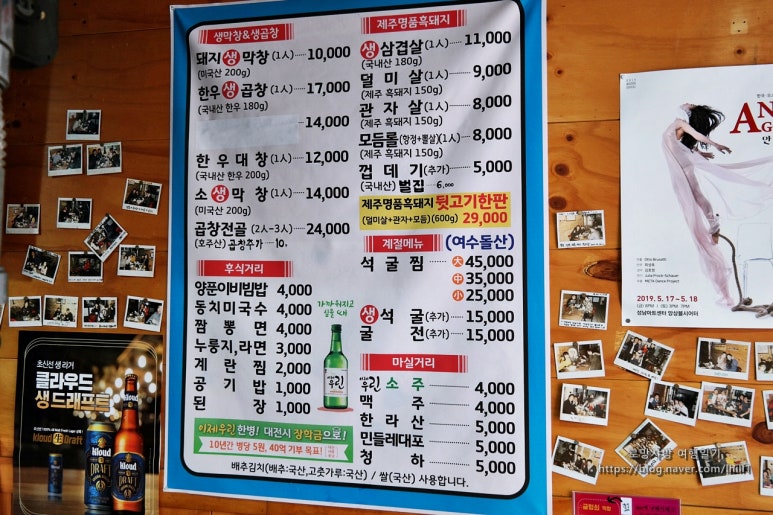 생막창&생곱창
돼지 생 막창 (1人) 10,000
(미국산 200g)
한우 생 곱창 (1人) 17,000
(국내산 한우 180g)
14,000
한우대창 (1人) 12,000
(국내산 한우 200g)
소 생 막창 (1人) 14,000
(미국산 200g)
곱창전골 (2人~3人) 24,000
(호주산) 곱창추가 10.
후식거리
양푼이비빔밥 4,000
동치미국수 4,000
짬뽕면 4,000
누룽지,라면 3,000
계란찜 2,000
공기밥 1,000
된장 1,000
가까워지고
싶을 때
이제우린 한병! 대전시 장학금으로!
10년간 병당 5원, 40억 기부 목표!
제주명품흑돼지
생 삼겹살 (1人) 11,000
(국내산 180g)
덜미살 (1人) 9,000
(제주 흑돼지 150g)
관자살 (1人) 8,000
(제주 흑돼지 150g)
모듬롤 (항정+뽈살)(1人) 8,000
(제주 흑돼지 150g)
껍데기 (추가) 5,000
(국내산) 벌집 6,000
제주명품흑돼지 뒷고기한판
(덜미살+관자+모듬) (600g) 29,000
계절메뉴 (여수돌산)
석굴찜 大 45,000
中 35,000
小 25,000
생 석굴 (추가) 15,000
굴전 (추가) 15,000
마실거리
이제우린 소주 4,000
맥주 4,000
한라산 5,000
민들레대포 5,000
청하 5,000
배추김치(배추:국산,고춧가루:국산) / 쌀(국산) 사용합니다.
초신선 생 라거
클라우드
생 드래프트
kloud 生 Draft
kloud
DRAFT
kloud
DRAFT
AN
G
안
2019. 5.17 - 5.18
성남아트센터 앙상블시어터
로망사랑 여행일기,
https://blog.naver.com/lhil11